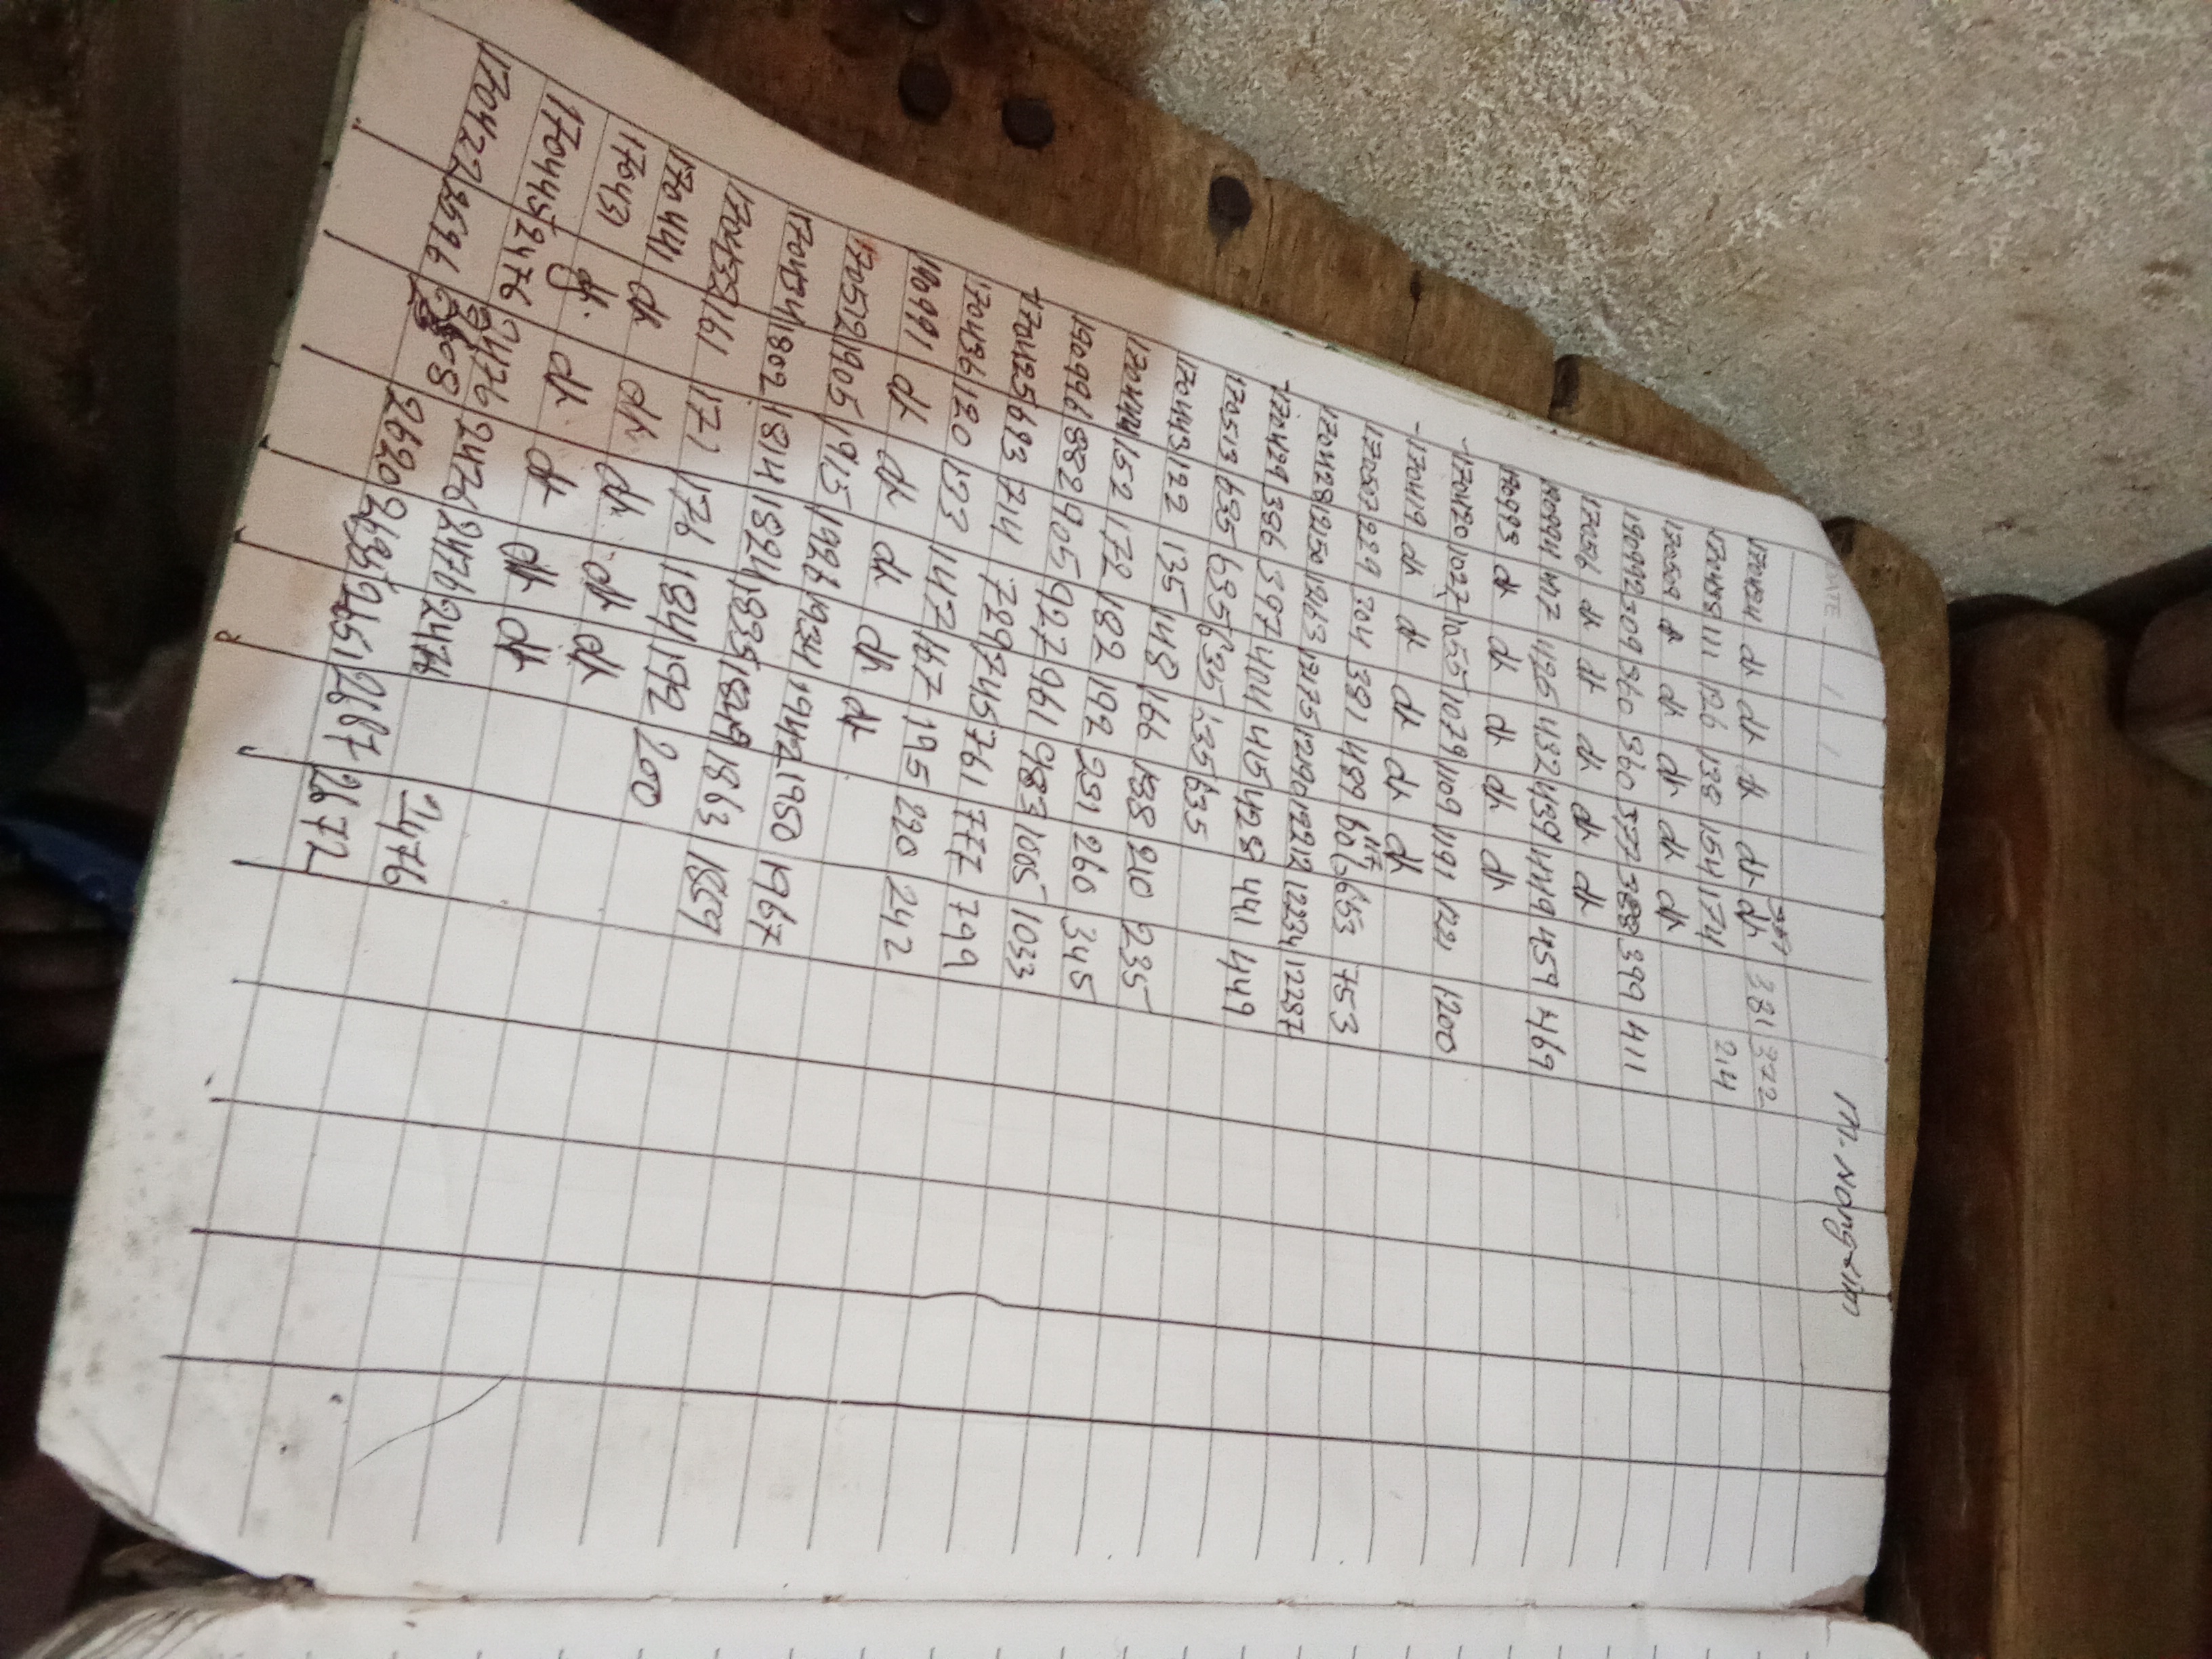 DATE
M. Nongrim
170424 dk dk dk dk dk 381 372
170438 111 126 138 154 174 214
170509 dk dk dk dk dk
190992 309 360 360 377 388 399 411
170516 dk dk dk dk dk
190994 417 426 432 439 449 459 469
190993 dk dk dk dk dk
170420 1027 1055 1079 1109 1191 1200
170419 dk dk dk dk dk
170507 229 304 391 489 606 653 753
170428 12150 12163 12175 12190 12212 12234 12287
170429 386 397 404 415 428 441 449
170513 635 635 635 635 635
170443 122 135 148 166 188 210 235
170444 152 172 182 192 231 260 345
190996 882 905 927 961 983 1005 1033
170425 693 714 729 745 761 777 799
170436 120 133 147 167 195 220 242
190991 dk dk dk dk dk
170512 1905 1915 1926 1934 1942 1950 1967
170434 1802 1814 1824 1835 1849 1863 1889
170432 161 171 176 184 192 200
170441 dk dk dk dk dk
17043 dk dk dk dk
170445 2476 2476 2476 2476 2476 2476
170422 2596 2608 2620 2651 2687 2672